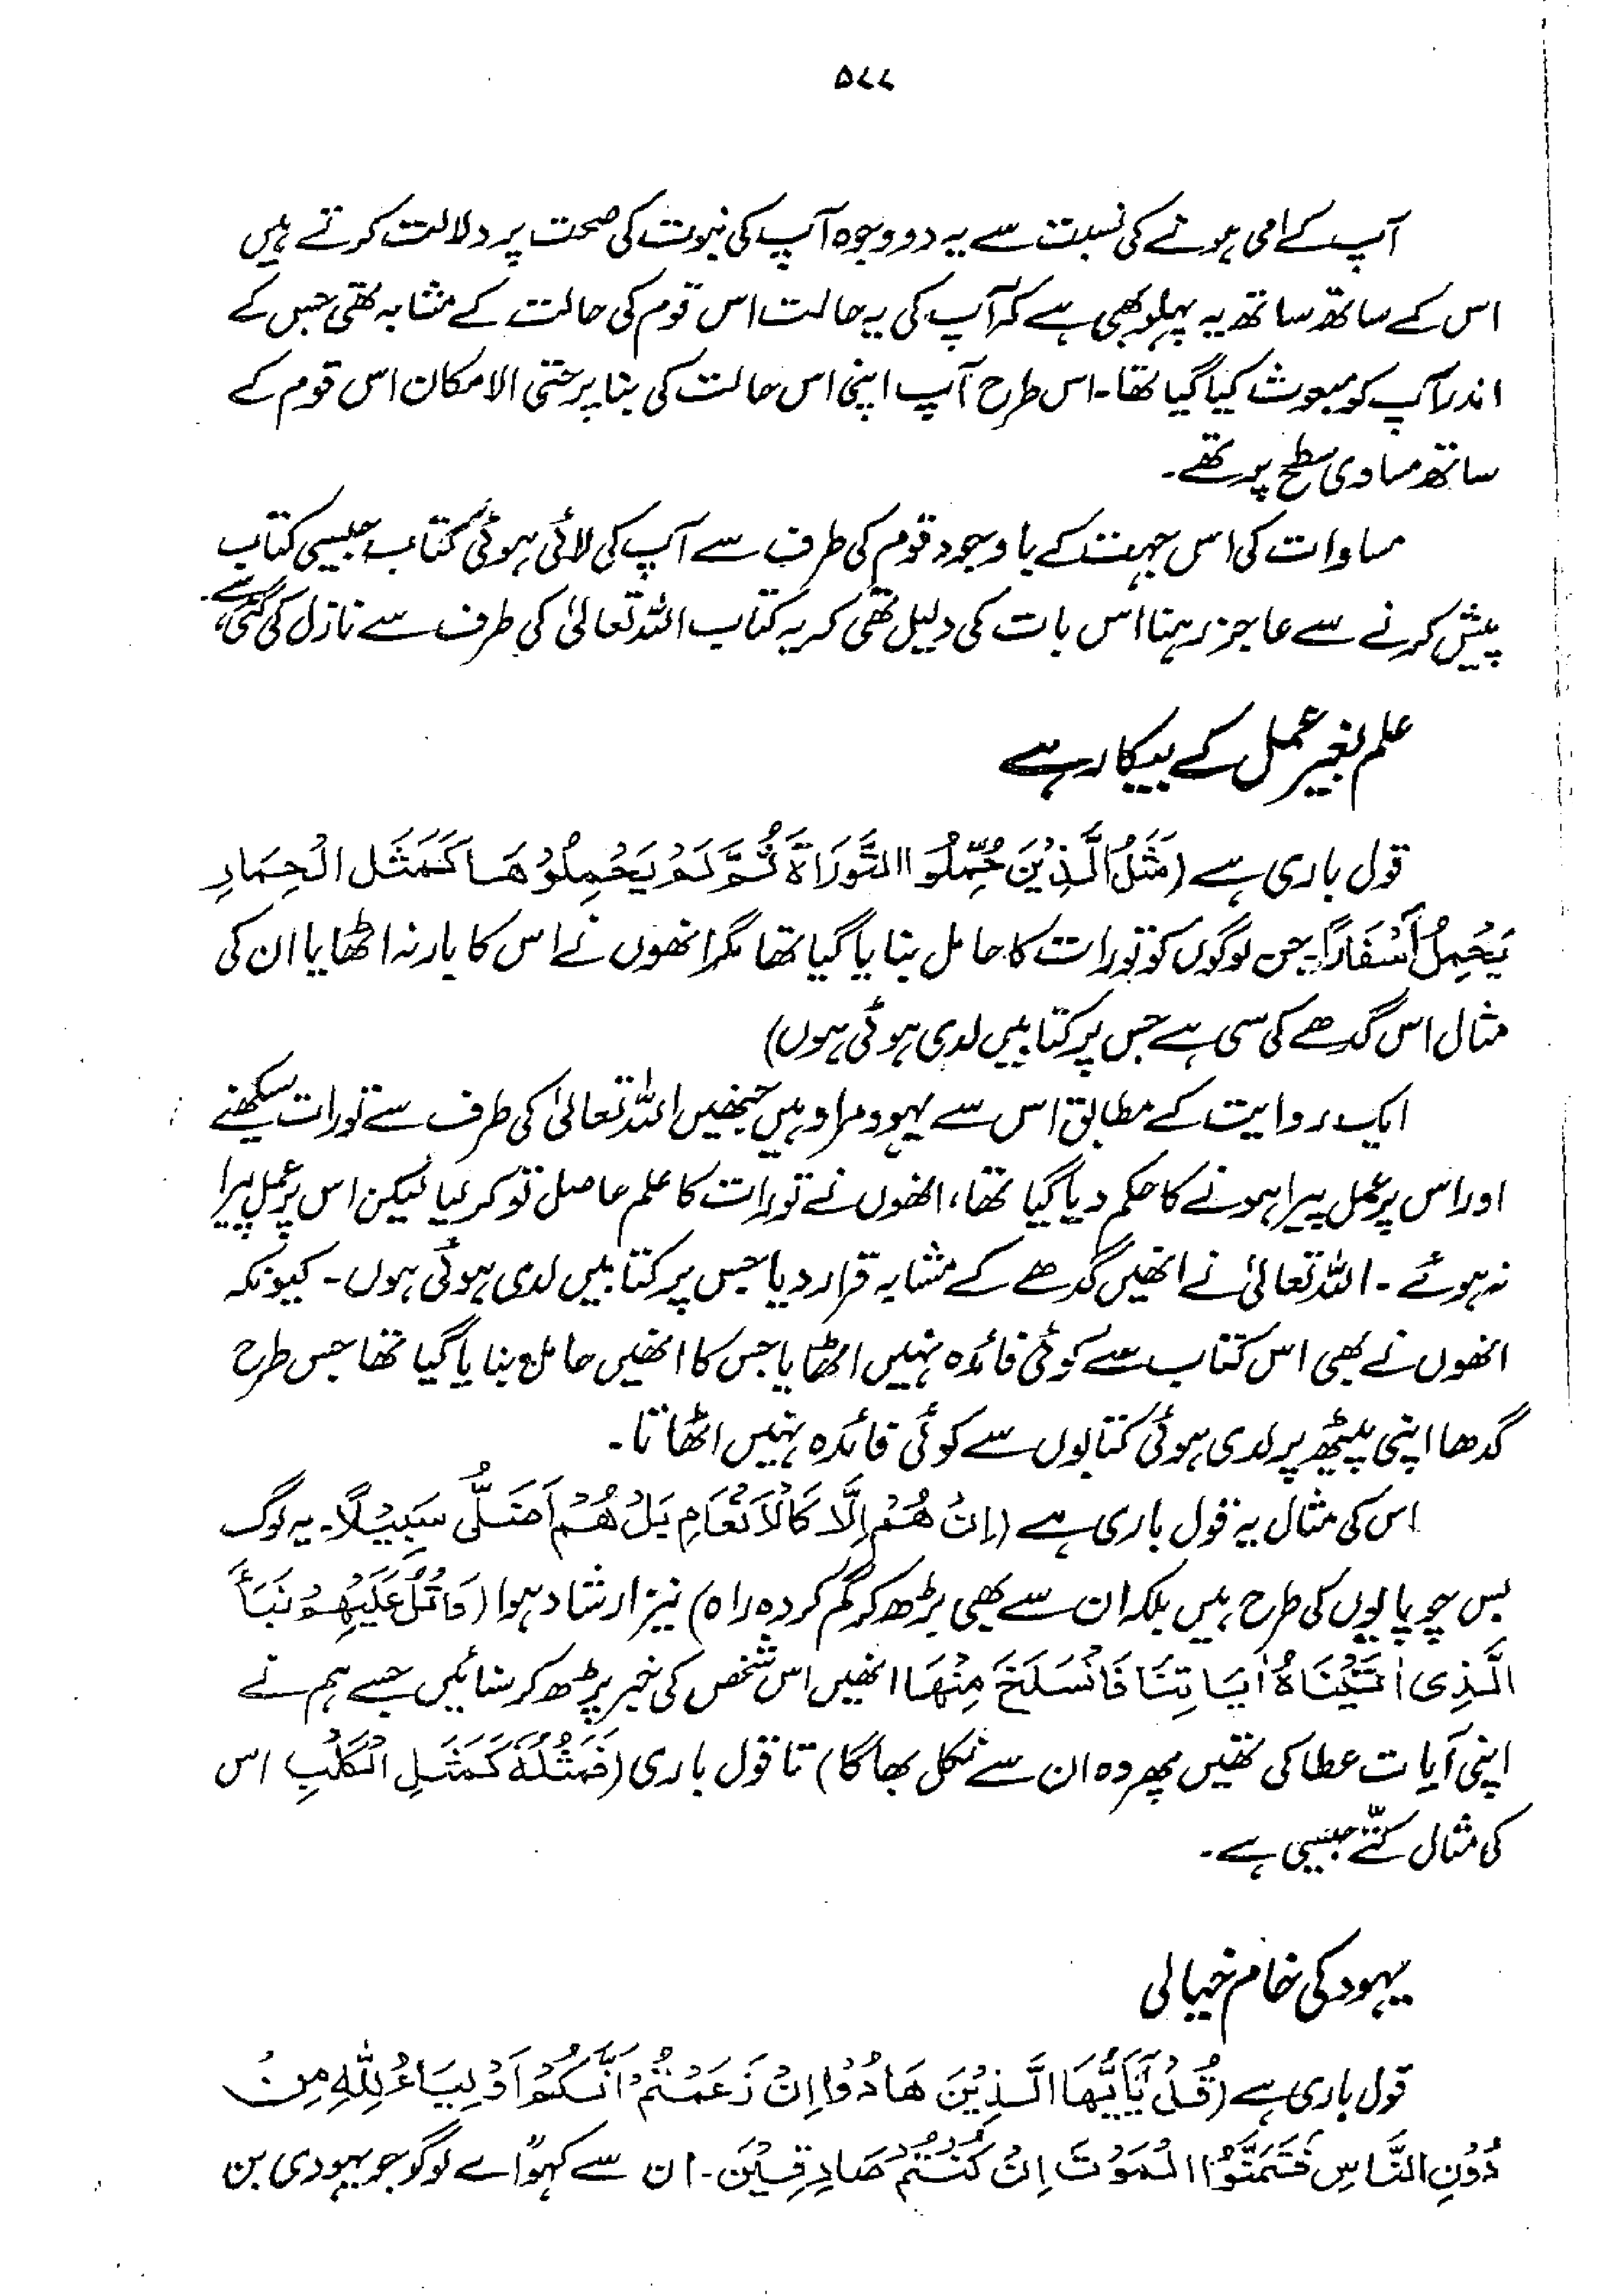 ۵۷۷
آپ کے امی ہونے کی نسبت سے یہ دو وجوہ آپ کی نبوت کی صحت پر دلالت کرتے ہیں
اس کے ساتھ ساتھ یہ پہلو بھی ہے کہ آپ کی یہ حالت اس قوم کی حالت کے مشابہ تھی جس کے
اندر آپ کو مبعوث کیا گیا تھا۔ اس طرح آپ اپنی اس حالت کی بنا پر حتی الامکان اس قوم کے
ساتھ مساوی سطح پر تھے۔
مساوات کی اس جہت کے باوجود قوم کی طرف سے آپ کی لائی ہوئی کتاب جیسی کتاب
پیش کرنے سے عاجز رہنا اس بات کی دلیل تھی کہ یہ کتاب اللہ تعالیٰ کی طرف سے نازل کی گئی ہے۔
علم بغیر عمل کے بیکار ہے
قول باری ہے (مَثَلُ الَّذِيْنَ حُمِّلُوا التَّوْرَاةَ ثُمَّ لَمْ يَحْمِلُوْهَا كَمَثَلِ الْحِمَارِ
يَحْمِلُ أَسْفَارًا۔ جن لوگوں کو تورات کا حامل بنایا گیا تھا مگر انھوں نے اس کا بار نہ اٹھایا ان کی
مثال اس گدھے کی سی ہے جس پر کتابیں لدی ہوئی ہوں)
ایک روایت کے مطابق اس سے یہود مراد ہیں جنھیں اللہ تعالیٰ کی طرف سے تورات سیکھنے
اور اس پر عمل پیرا ہونے کا حکم دیا گیا تھا، انھوں نے تورات کا علم حاصل تو کر لیا لیکن اس پر عمل پیرا
نہ ہوئے۔ اللہ تعالیٰ نے انھیں گدھے کے مشابہ قرار دیا جس پر کتابیں لدی ہوئی ہوں۔ کیونکہ
انھوں نے بھی اس کتاب سے کوئی فائدہ نہیں اٹھایا جس کا انھیں حامل بنایا گیا تھا جس طرح
گدھا اپنی پیٹھ پر لدی ہوئی کتابوں سے کوئی فائدہ نہیں اٹھاتا۔
اس کی مثال یہ قول باری ہے (اِنْ هُمْ اِلَّا كَالْاَنْعَامِ بَلْ هُمْ اَضَلُّ سَبِيْلًا۔ یہ لوگ
بس چوپایوں کی طرح ہیں بلکہ ان سے بھی بڑھ کر گم کردہ راہ) نیز ارشاد ہوا (وَاتْلُ عَلَيْهِمْ نَبَأَ
الَّذِى اٰتَيْنَاهُ اٰيَاتِنَا فَانْسَلَخَ مِنْهَا انھیں اس شخص کی خبر پڑھ کر سنائیں جسے ہم نے
اپنی آیات عطا کی تھیں پھر وہ ان سے نکل بھاگا) تا قول باری (فَمَثَلُهٗ كَمَثَلِ الْكَلْبِ اس
کی مثال کتے جیسی ہے۔
یہود کی خام خیالی
قول باری ہے (قُلْ يٰٓاَيُّهَا الَّذِيْنَ هَادُوْا اِنْ زَعَمْتُمْ اَنَّكُمْ اَوْلِيَاءُ لِلّٰهِ مِنْ
دُوْنِ النَّاسِ فَتَمَنَّوُا الْمَوْتَ اِنْ كُنْتُمْ صَادِقِيْنَ۔ ان سے کہو "اے لوگو جو یہودی بن